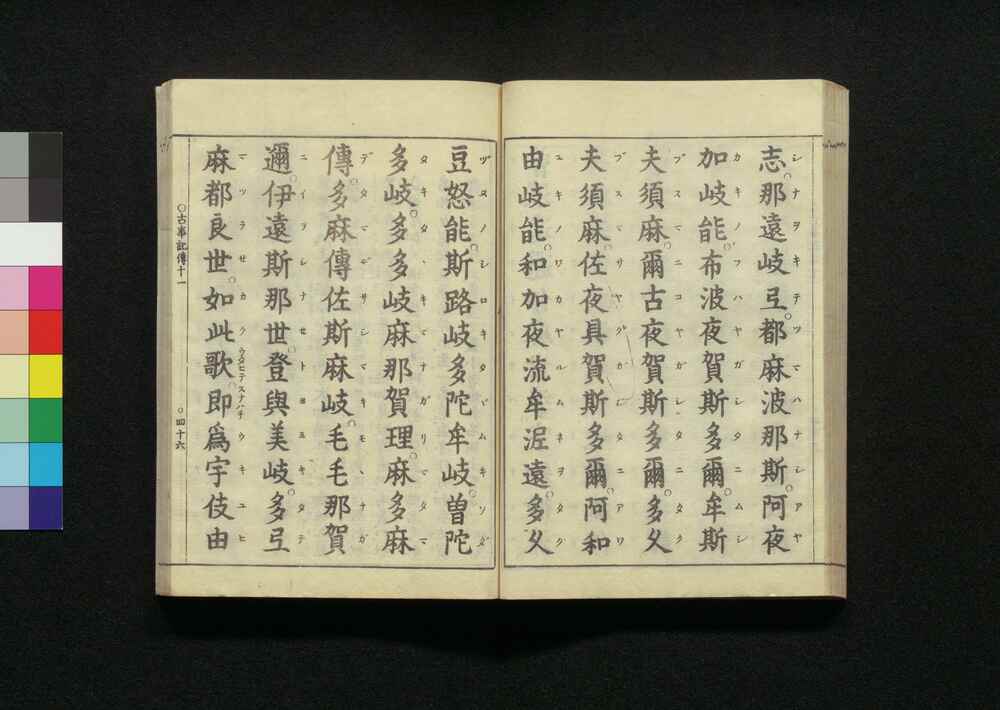 志那遠岐弖都麻波那斯阿夜
加岐能布波夜賀斯多爾牟斯
夫須麻爾古夜賀斯多爾多久
夫須麻佐夜具賀斯多爾阿和
由岐能和加夜流牟泥遠多久
豆怒能斯路岐多陀牟岐曽陀
多岐多多岐麻那賀理麻多麻
傳多麻傳佐斯麻岐毛毛那賀
邇伊遠斯那世登與美岐多弖
麻都良世如此歌即為宇伎由
ウタヒテスナハチ
○古事記傳十一
○四十六